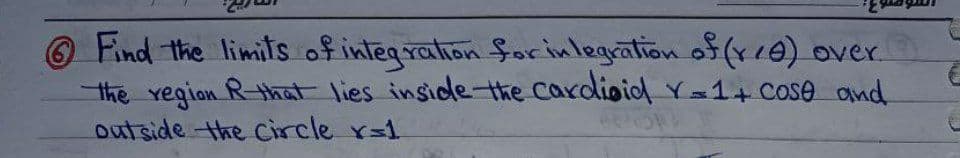 ⑥ Find the limits of integration for inlegration of f(r,θ) over
the region R that lies inside the cardioid r=1+ cosθ and
outside the circle r=1